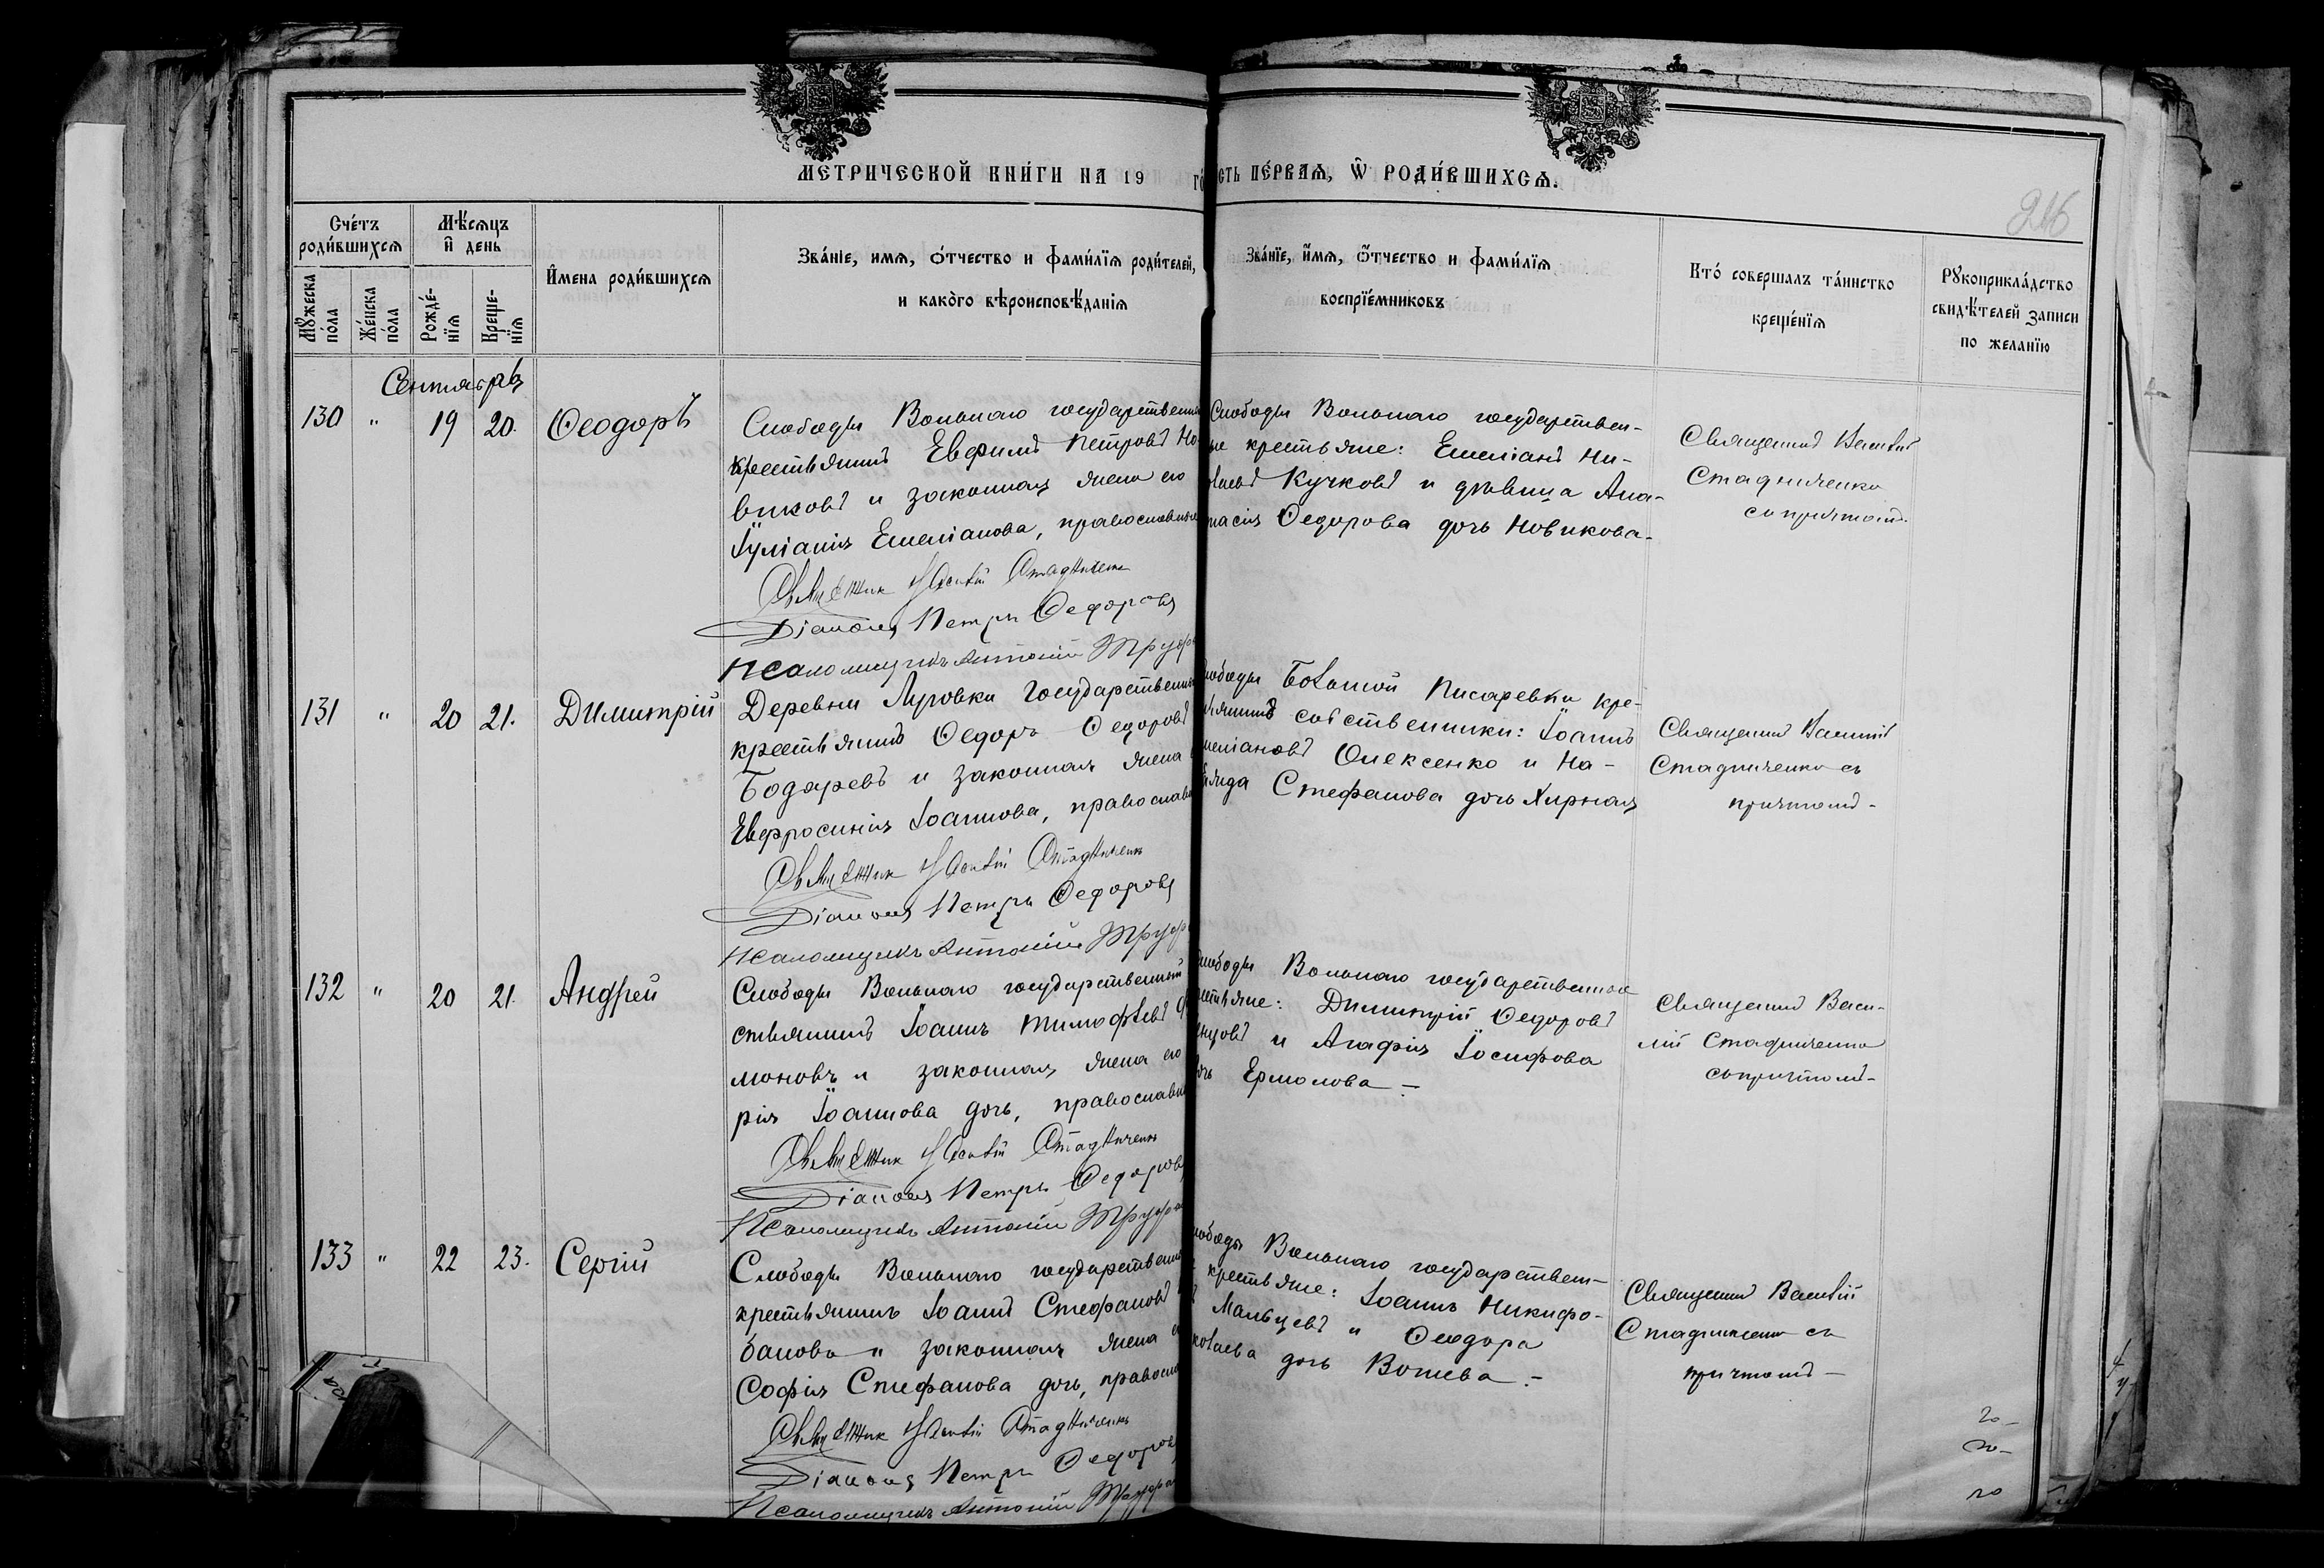 МЕТРИЧЕСКОЙ КНИ́ГИ НА 19
СТЬ ПЕ́РВАѦ, Ѡ҆ РОДИ́ВШИХСѦ.
216
Сче́тъ
роди́вшихсѧ
Мѣ́сѧцъ
и҆ день
И҆мена роди́вшихсѧ
Зва́нїе, имѧ, о́тчество и фами́лїѧ роди́телей,
и како́го вѣроисповѣ́данїѧ
Му́жеска
по́ла
Же́нска
по́ла
Рожде́-
нїѧ
Креще-
нїѧ
Зва́нїе, и҆́мѧ, ѻ҆́тчество и фами́лїѧ
воспрїе́мниковъ
Кто́ совершалъ та́инство
креще́нїѧ
Рꙋкоприкла́дство
свидѣ́телей записи
по желанїю
Сентябрь
130 " 19 20. Ѳеодоръ
Слободы Вольнаго государственный
крестьянинъ Евфимъ Петровъ Но
виковъ и законная жена его
Іуліанія Емеліанова, православные
Священник Василій Стадниченко
Діаконъ Петръ Ѳедоровъ
Псаломщикъ Антоній
Слободы Вольнаго государствен-
ые крестьяне: Емеліанъ Ни-
Кучковъ и дѣвица Ана-
тасія Ѳедорова дочь Новикова-
Священникъ Василій
Стадниченко
съ причтомъ.
131 " 20 21. Димитрій
Деревни Луговки Государственный
крестьянинъ Ѳедоръ Ѳедоровъ
Бодаревъ и законная жена
Евфросинія Іоаннова, православ
Священник Василій Стадниченко
Діаконъ Петръ Ѳедоровъ
Псаломщикъ Антоній
Боланой Писаревки кре-
собственники: Іоаннъ
Олексенко и На-
Стефанова дочь Жирная
Священникъ Василій
Стадниченко съ
причтомъ-
132 " 20 21. Андрей
Слободы Вольнаго государственный
стьянинъ Іоаннъ Тимоѳѣевъ
моновъ и законная жена его
рія Іоаннова дочь, православн
Священник Василій Стадниченко
Діаконъ Петръ Ѳедоровъ
Псаломщикъ Антоній
Вольнаго государственные
Димитрій Ѳедоровъ
и Агафія Іосифова
Ермолова -
Священникъ Васи-
лій Стадниченко
съ причтомъ-
133 " 22 23. Сергій
Слободы Вольнаго государственный
крестьянинъ Іоаннъ Стефановъ
бановъ и законная жена
Софія Стефанова дочь, правосла
Священник Василій Стадниченко
Діаконъ Петръ Ѳедоровъ
Псаломщикъ Антоній
Вольнаго государствен-
крестьяне: Іоаннъ Никифо-
Мальцевъ и Ѳеодора
дочь Вотева.-
Священникъ Василій
Стадниченко съ
причтомъ-